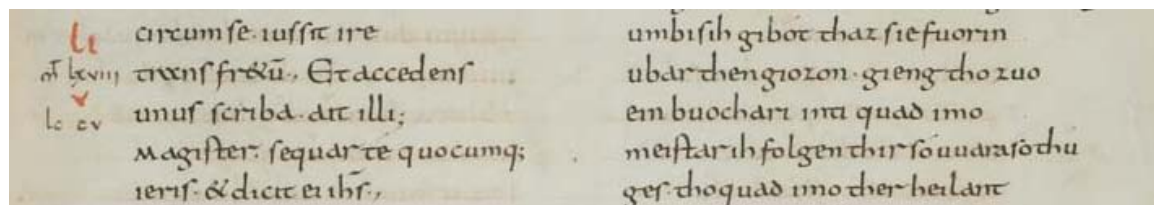 circum se. iussit ire
mt lxviii trans fr&ū., Et accedens
lc cv unus scriba. ait illi;
Magister. sequar té quocumq;
ieris. & dicit ei ihs.,
umbi sih gibót thaz sie fuorin
ubar then giozon. gieng tho zuo
ein buochari inti quad imo
meistar ih folgen thir só uuara só thu
ges. tho quad imo ther heilant